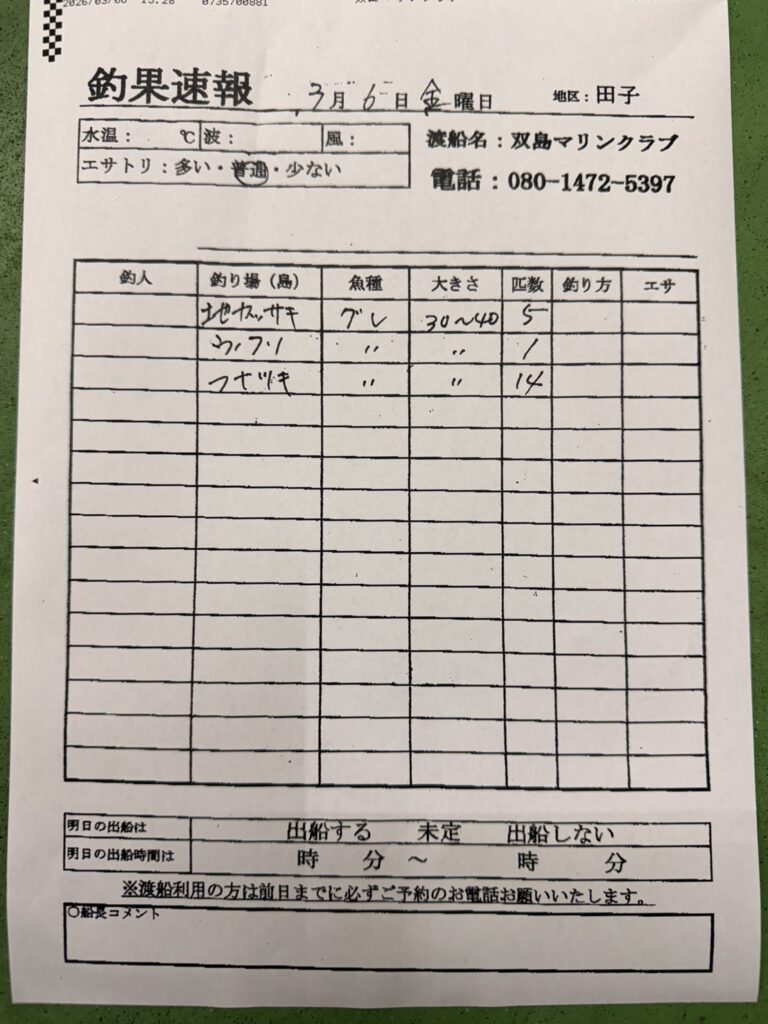 2026/03/06 15:28 0735700881
釣果速報 3月6日金曜日 地区：田子
水温： ℃ 波： 風：
渡船名：双島マリンクラブ
エサトリ：多い・普通・少ない
電話：080-1472-5397
釣人 釣り場（島） 魚種 大きさ 匹数 釣り方 エサ
グレ 30〜40 5
〃 〃 1
〃 〃 14
明日の出船は 出船する 未定 出船しない
明日の出船時間は 時 分 〜 時 分
※渡船利用の方は前日までに必ずご予約のお電話お願いいたします。
○船長コメント